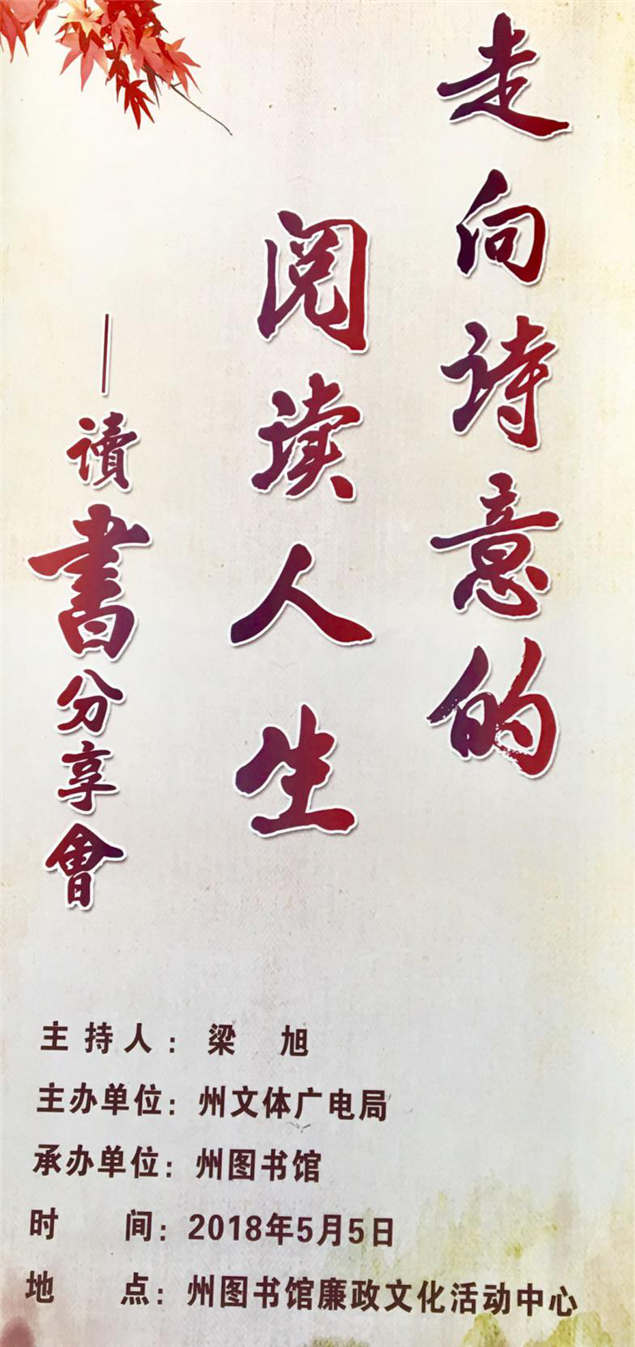 走向诗意的
阅读人生
—讀書分享會
主持人：梁 旭
主办单位：州文体广电局
承办单位：州图书馆
时 间：2018年5月5日
地 点：州图书馆廉政文化活动中心